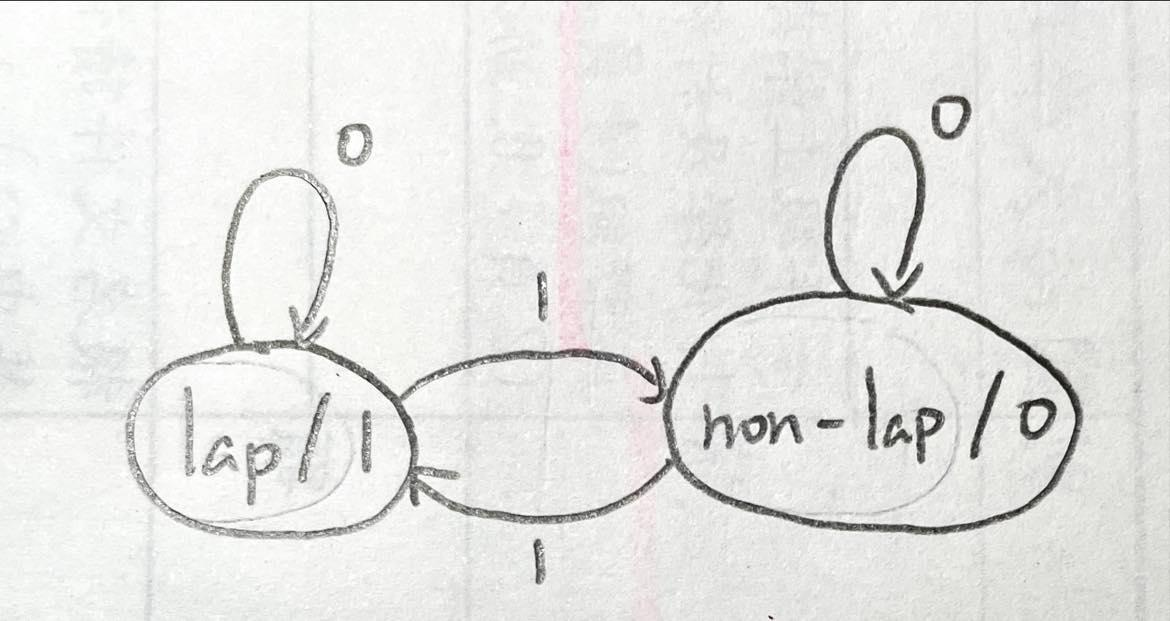 0
0
1
lap/1
non-lap/0
1